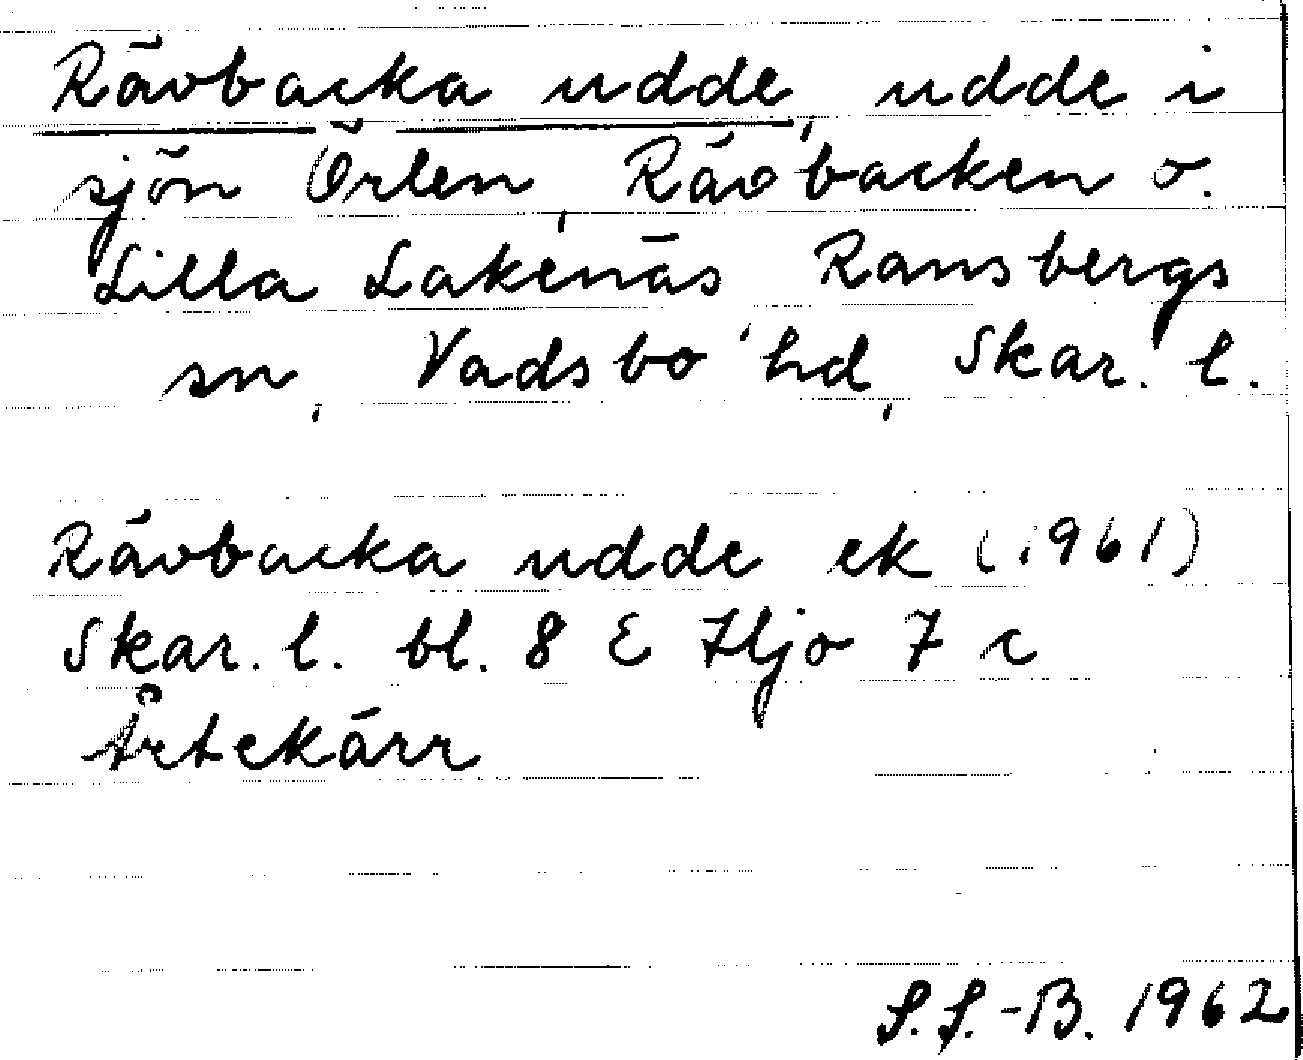 Rävbacka udde, udde i
sjön Örlen, Rävbacken o.
Lilla Lakenäs, Ransbergs
sn, Vadsbo hd, Skar. l.
Rävbacka udde ek (1961)
Skar. l. bl. 8 E Hjo 7 c
Årtekärr
S.S.-B. 1962